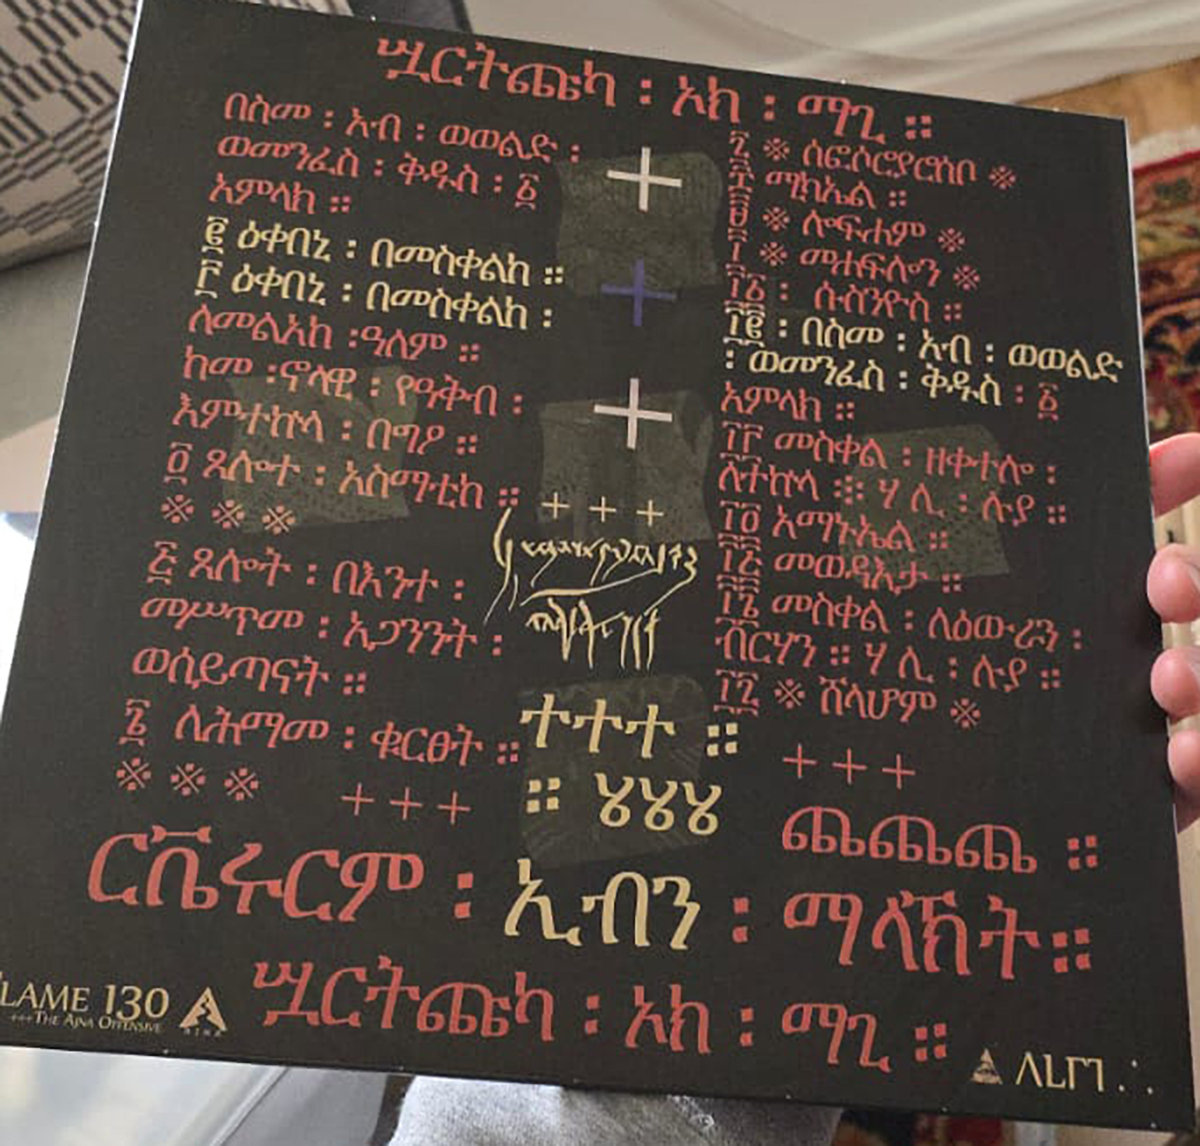 ሧርትጩካ ፡ ኦክ ፡ ማጊ ።
በስመ ፡ አብ ፡ ወወልድ ፡
ወመንፈስ ፡ ቅዱስ ፡ ፩
አምላክ ።
፪ ዕቀበኒ ፡ በመስቀልከ ።
፫ ዕቀበኒ ፡ በመስቀልከ ፡
ለመልአከ ፡ዓለም ።
ከመ ፡ኖላዊ ፡ የዓቅብ ፡
እምተኵላ ፡ በግዖ ።
፬ ጸሎተ ፡ አስማቲከ ።
※ ※ ※
፭ ጸሎት ፡ በእንተ ፡
መሥጥመ ፡ አጋንንት ፡
ወሰይጣናት ።
፮ ለሕማመ ፡ ቁርፀት ።
※ ※ ※
+ + +
+ + +
ተተተ ።
። ሄሄሄ
፯ ※ ሰፎሶሮያርሰቦ ※
፰ ማካኤል ።
፱ ※ ሎፍሐም ※
፲ ※ መሐፍሎን ※
፲፩ ፡ ሱስንዮስ ።
፲፪ ፡ በስመ ፡ አብ ፡ ወወልድ
፡ ወመንፈስ ፡ ቅዱስ ፡ ፩
አምላክ ።
፲፫ መስቀል ፡ ዘቀተሎ ፡
ለተኵላ ፨ ሃ ሊ ፡ ሉያ ።
፲፬ አማኑኤል ።
፲፭ መወዳእታ ።
፲፮ መስቀል ፡ ለዕውራን ፡
ብርሃን ። ሃ ሊ ፡ ሉያ ።
፲፯ ※ ሸላሆም ※
+ + +
ጨጨጨ ።
ርቬሩርም ፡ ኢብን ፡ ማላኽት ።
ሧርትጩካ ፡ ኦክ ፡ ማጊ ።
LAME 130
+++THE AJNA OFFENSIVE
AJNA